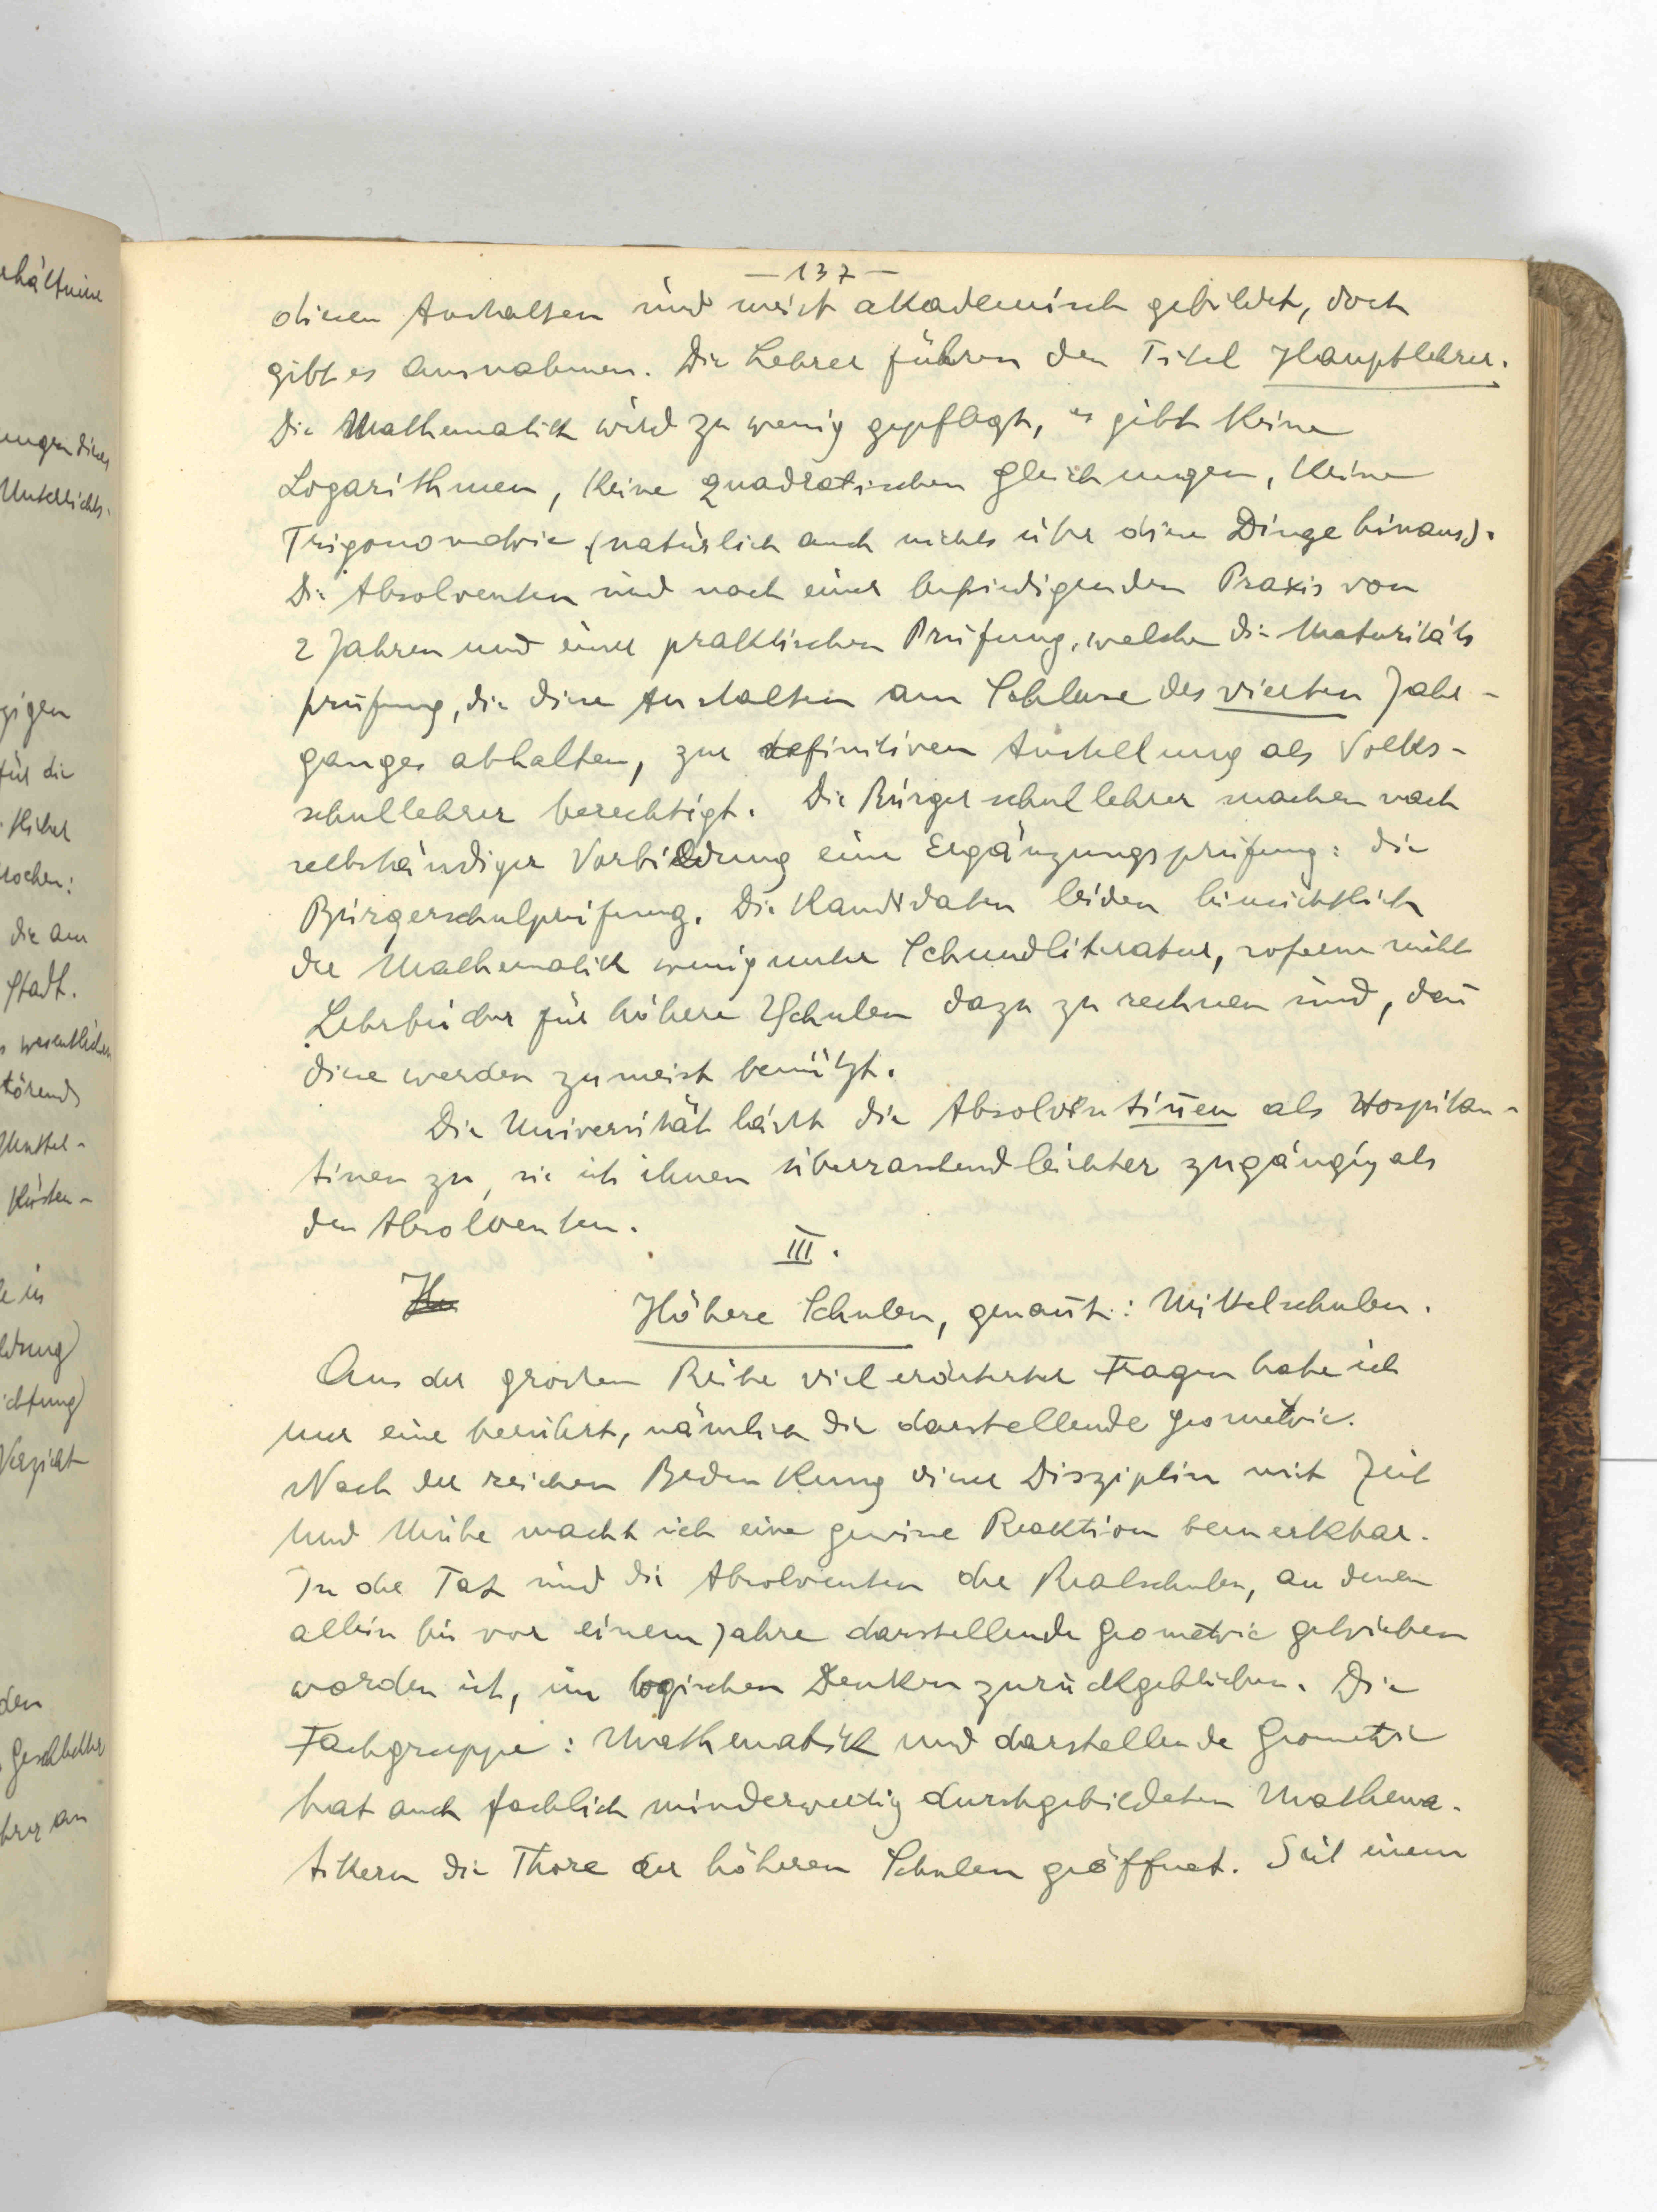 — 137 —
diesen Anstalten sind meist akademisch gebildet, doch
gibt es Ausnahmen. Die Lehrer führen den Titel Hauptlehrer.
Die Mathematik wird zu wenig gepflegt, es gibt keine
Logarithmen, keine quadratischen Gleichungen, keine
Trigonometrie (natürlich auch nichts über diese Dinge hinaus).
Die Absolventen sind nach einer befriedigenden Praxis von
2 Jahren und einer praktischen Prüfung, welche die Maturitäts
prüfung, die diese Anstalten am Schlusse des vierten Jahr-
ganges abhalten, zur definitiven Anstellung als Volks-
schullehrer berechtigt. Die Bürgerschullehrer machen nach
selbständiger Vorbildung eine Ergänzungsprüfung: die
Bürgerschulprüfung. Die Kandidaten leiden hinsichtlich
der Mathematik wenig unter Schundliteratur, sofern nicht
Lehrbücher für höhere Schulen dazu zu rechnen sind, den̄
diese werden zumeist benützt.
Die Universität lässt die Absolventin̄en als Hospitan-
tinen zu, sie ist ihnen überraschend leichter zugängig als
den Absolventen.
III.
Hö
Höhere Schulen, genan̄t: Mittelschulen.
Aus der grossen Reihe viel erörterter Fragen habe ich
nur eine berührt, nämlich die darstellende Geometrie.
Nach der reichen Bedenkung dieser Disziplin mit Zeit
und Mühe macht sich eine gewisse Reaktion bemerkbar.
In der Tat sind die Absolventen der Realschulen, an denen
allein bis vor einem Jahre darstellende Geometrie getrieben
worden ist, im logischen Denken zurückgeblieben. Die
Fachgruppe: Mathematik und darstellende Geometrie
hat auch fachlich minderwertig durchgebildeten Mathema-
tikern die Thore der höheren Schulen geöffnet. Seit einem